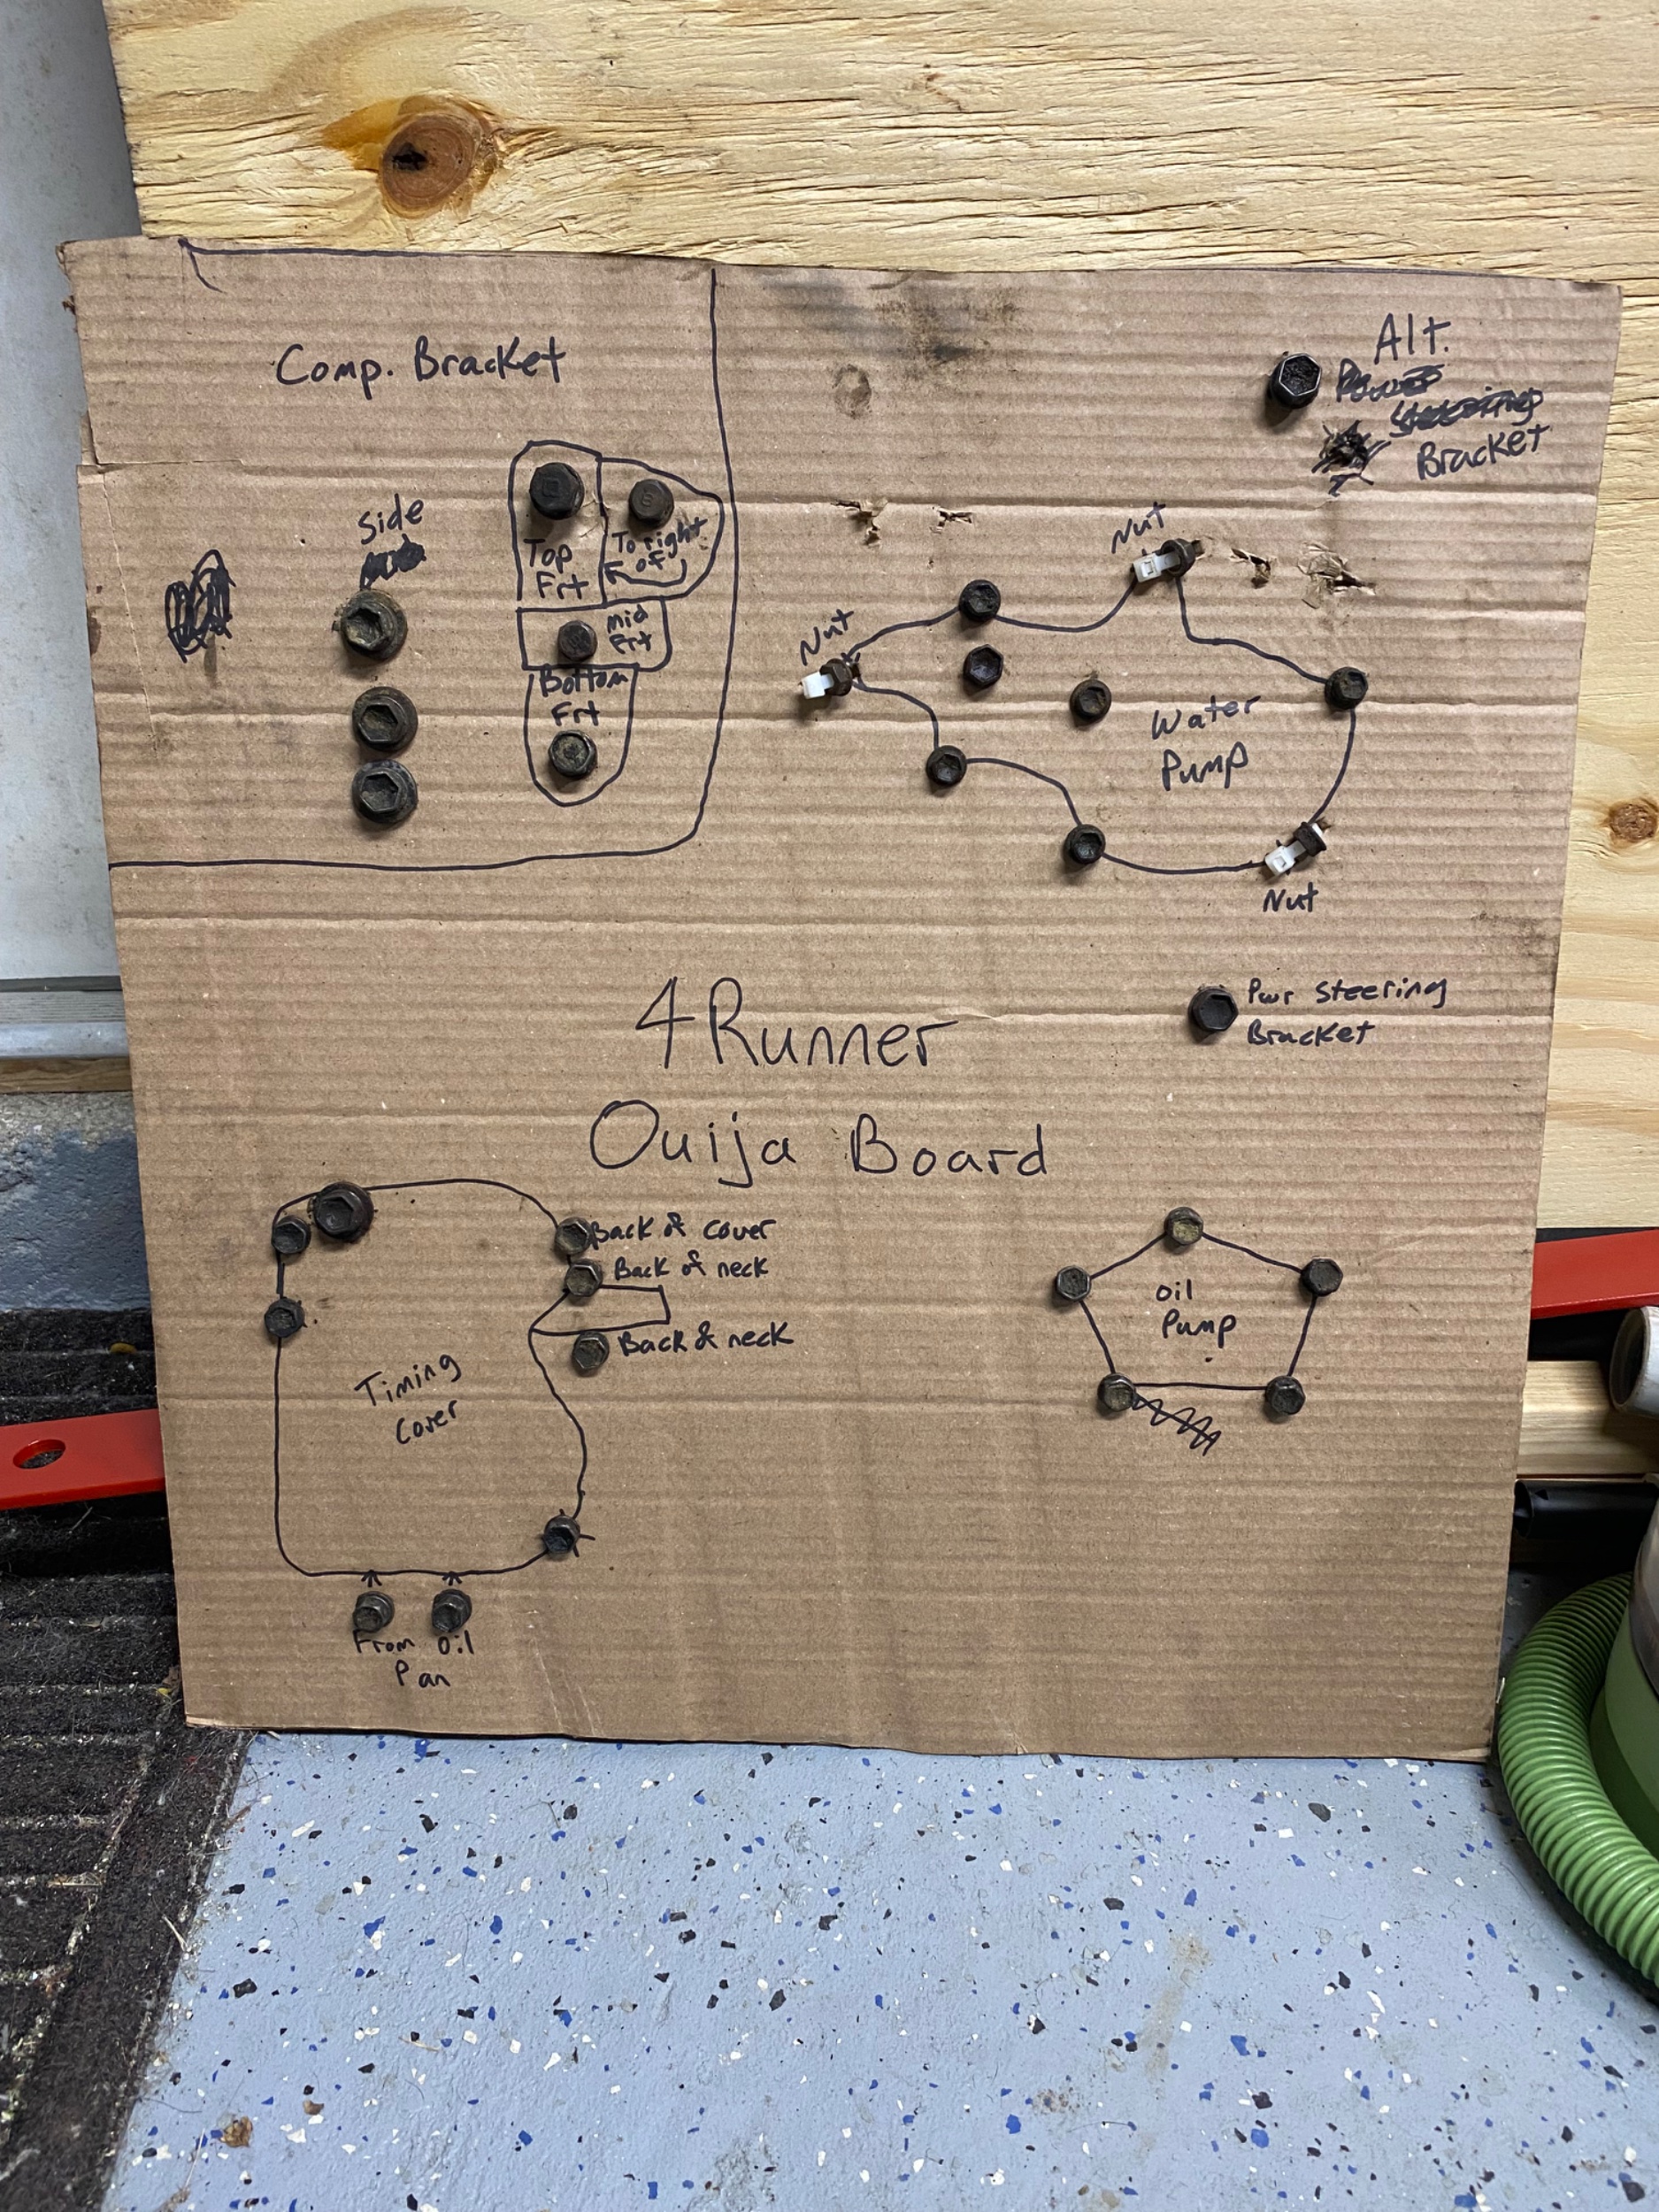 Comp. Bracket
Side
Top
Frt
To right
of
mid
Frt
Bottom
Frt
Alt.
Power
Steering
Bracket
Nut
Nut
Water
Pump
Nut
Pwr Steering
Bracket
4Runner
Ouija Board
Back of cover
Back of neck
Back of neck
Timing
Cover
From Oil
Pan
Oil
Pump